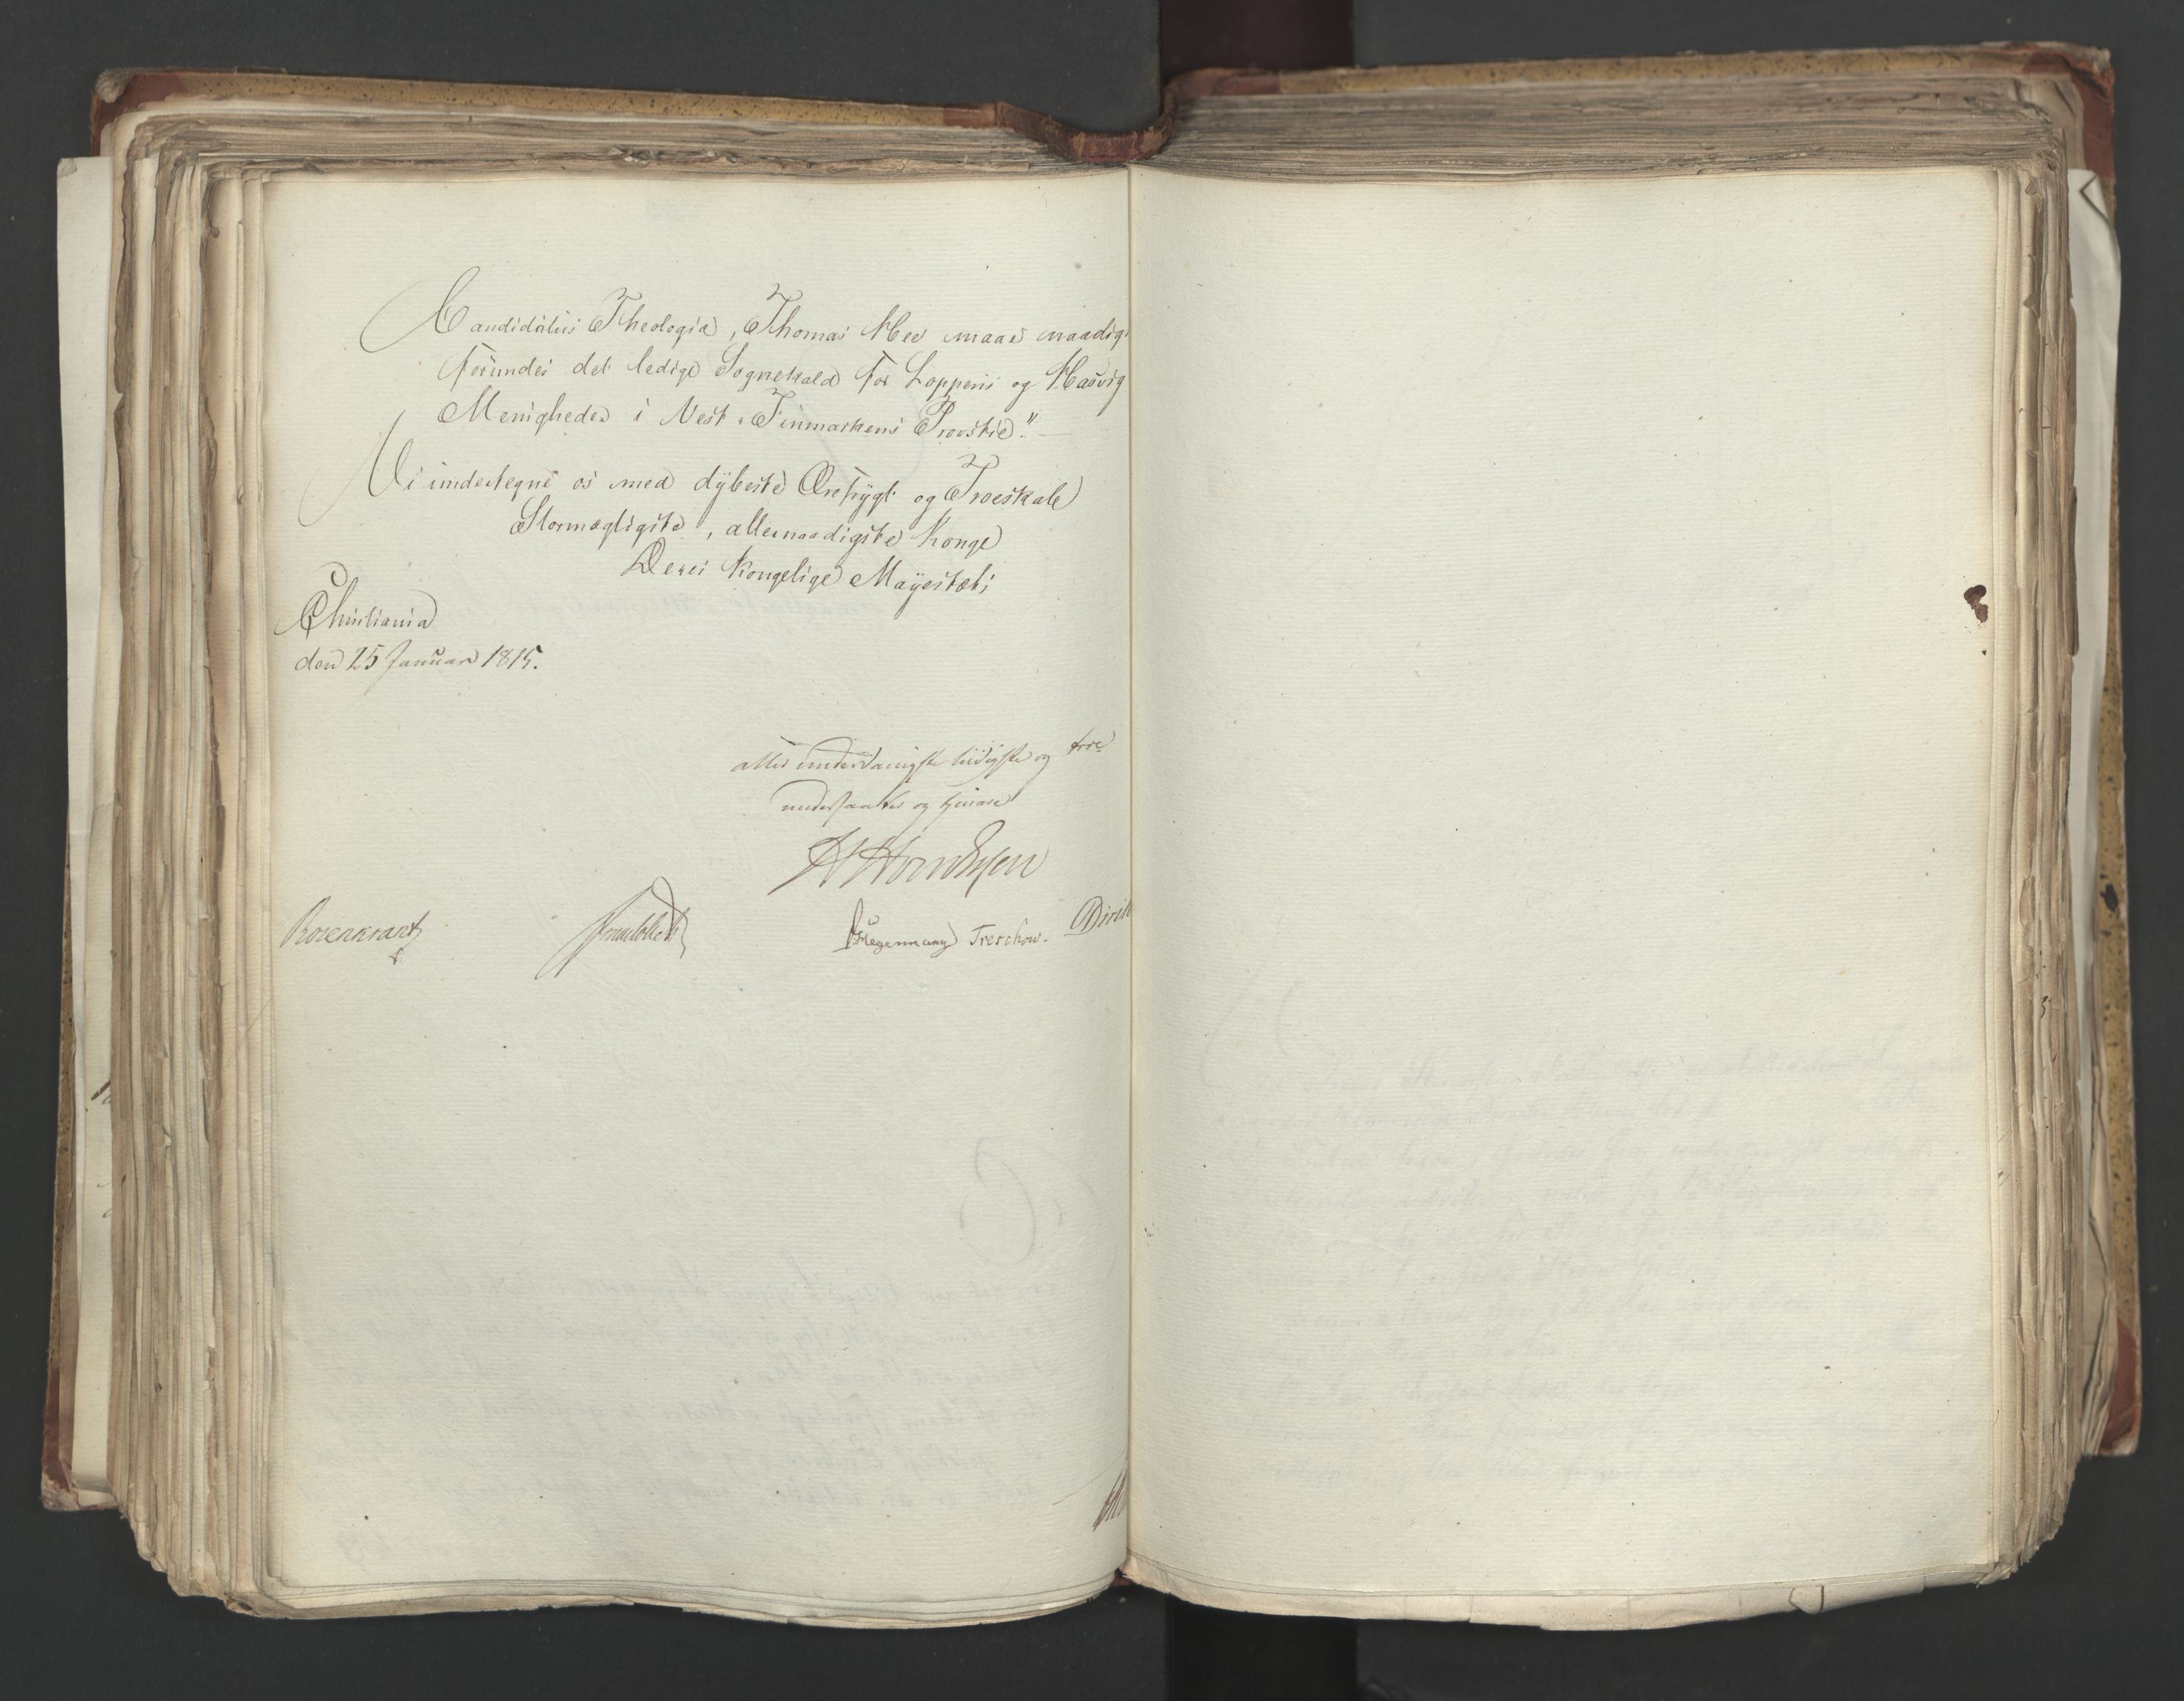 Candidatus Theologiæ, Thomas maae naadigt
forundes det ledige Sognekald for Loppens og Hasvig
Menigheder i Vest-Finmarkens Provstie."
Vi undertegne os med dybeste Ærefrygt og Troeskab
Stormægtigste, allernaadigste Konge
Deres Kongelige Mayestæts
Christiania
den 25 Januar 1815.
aller underdanigste lydigste og troe
undersaatter og tjenere
Rosenkrantz Hegermann Treschow.